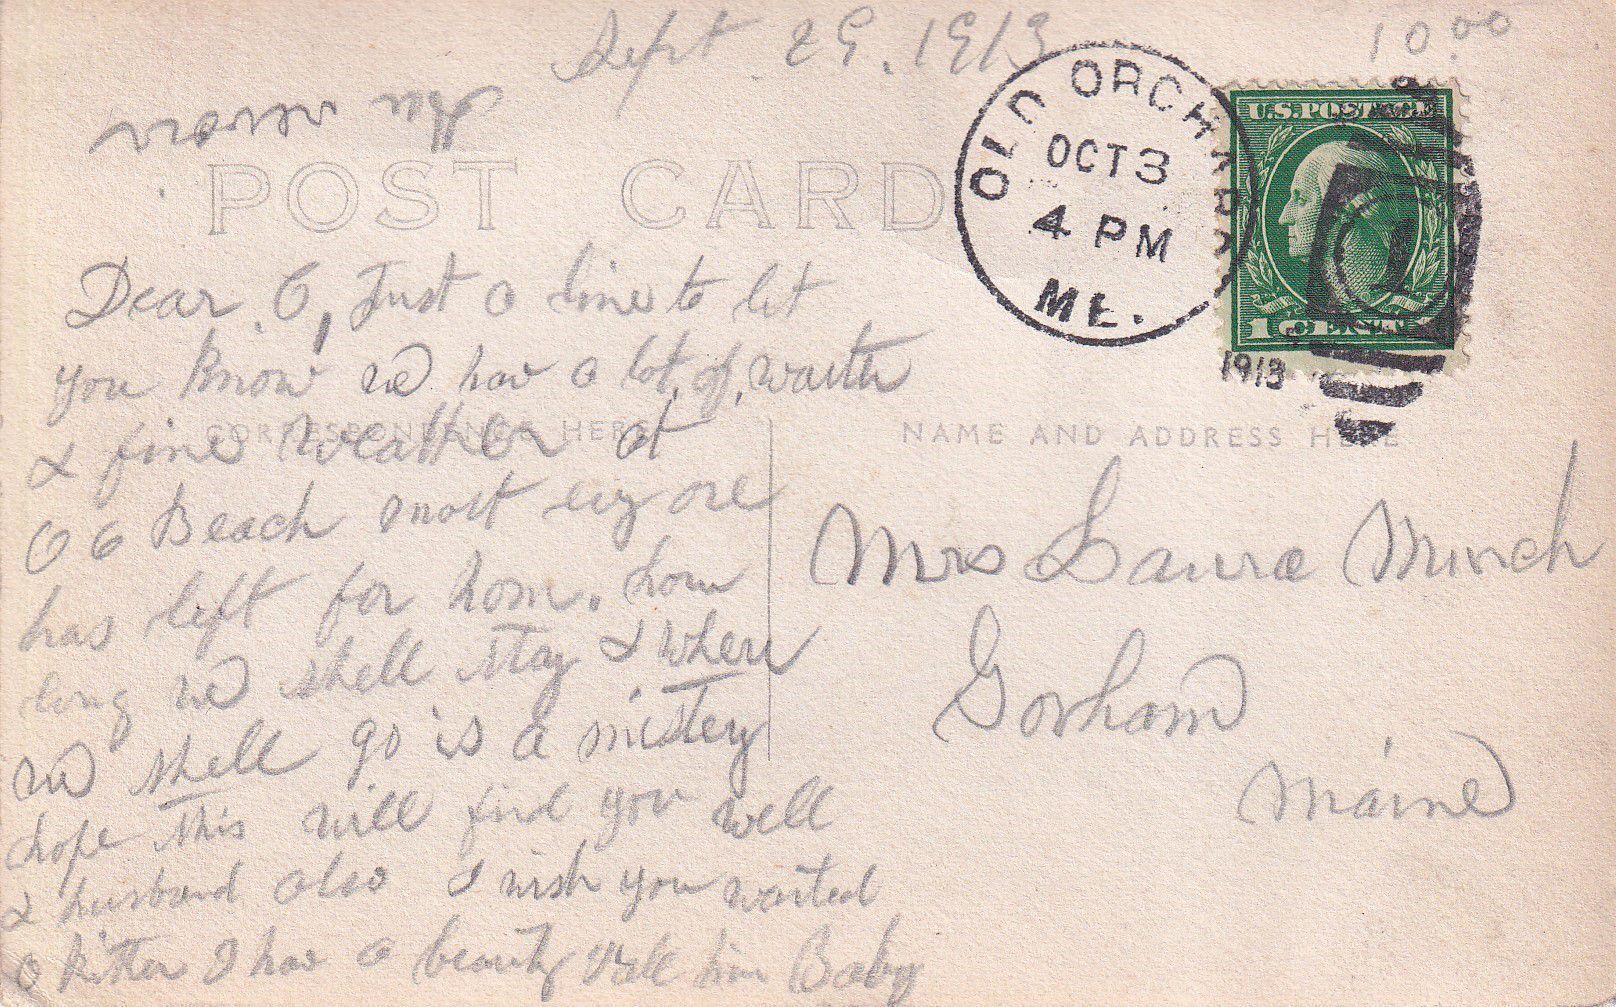 Sept 29. 1913
10.00
OLD ORCHARD
OCT 3
4 PM
ME.
1913
U.S. POSTAGE
1 CENT 1
POST CARD
Dear O, Just a line to let
you know we hav a lot of
& fine weather at
O O Beach most evy one
has left for hom. how
long we shell stay & where
we shell go is a mistey
hope this will find you well
& husband also I wish you wanted
a kitten I hav a beauty call him Baby
CORRESPONDENCE HERE
NAME AND ADDRESS HERE
Mrs Laura Minch
Gorham
Maine